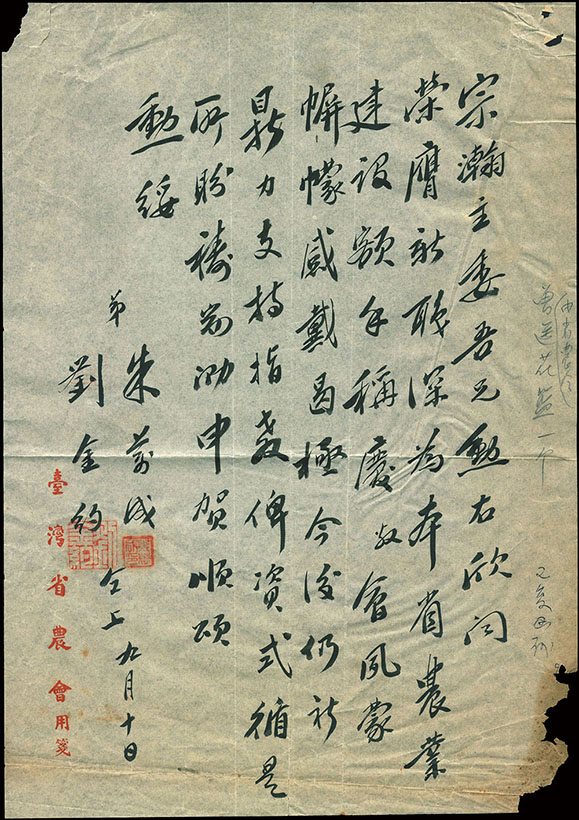 宗瀚主委吾兄勳右欣闻
榮膺新職深為本省農業
建設額手稱慶敝會夙蒙
帡幪感戴曷極今後仍祈
鼎力支持指教俾資式循是
所盼禱耑此申賀順頌
勳綏
弟
朱萬成
劉金約
仝上九月十日
臺灣省農會用箋
曾送花籃一个
已复函謝